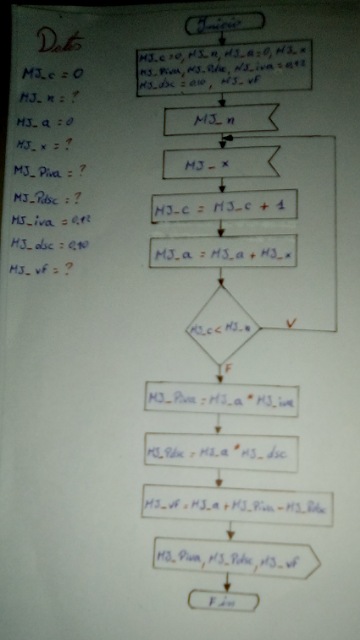 Datos
MJ_c = 0
MJ_n = ?
MJ_a = 0
MJ_x = ?
MJ_Piva = ?
MJ_Pdsc = ?
MJ_iva = 0,12
MJ_dsc = 0,10
MJ_vf = ?
Inicio
MJ_c=0, MJ_n, MJ_a=0, MJ_x
MJ_Piva, MJ_Pdsc, MJ_iva=0,12
MJ_dsc=0,10, MJ_vf
MJ_n
MJ_x
MJ_c = MJ_c + 1
MJ_a = MJ_a + MJ_x
MJ_c < MJ_n
V
F
MJ_Piva = MJ_a * MJ_iva
MJ_Pdsc = MJ_a * MJ_dsc
MJ_vf = MJ_a + MJ_Piva - MJ_Pdsc
MJ_Piva, MJ_Pdsc, MJ_vf
Fin